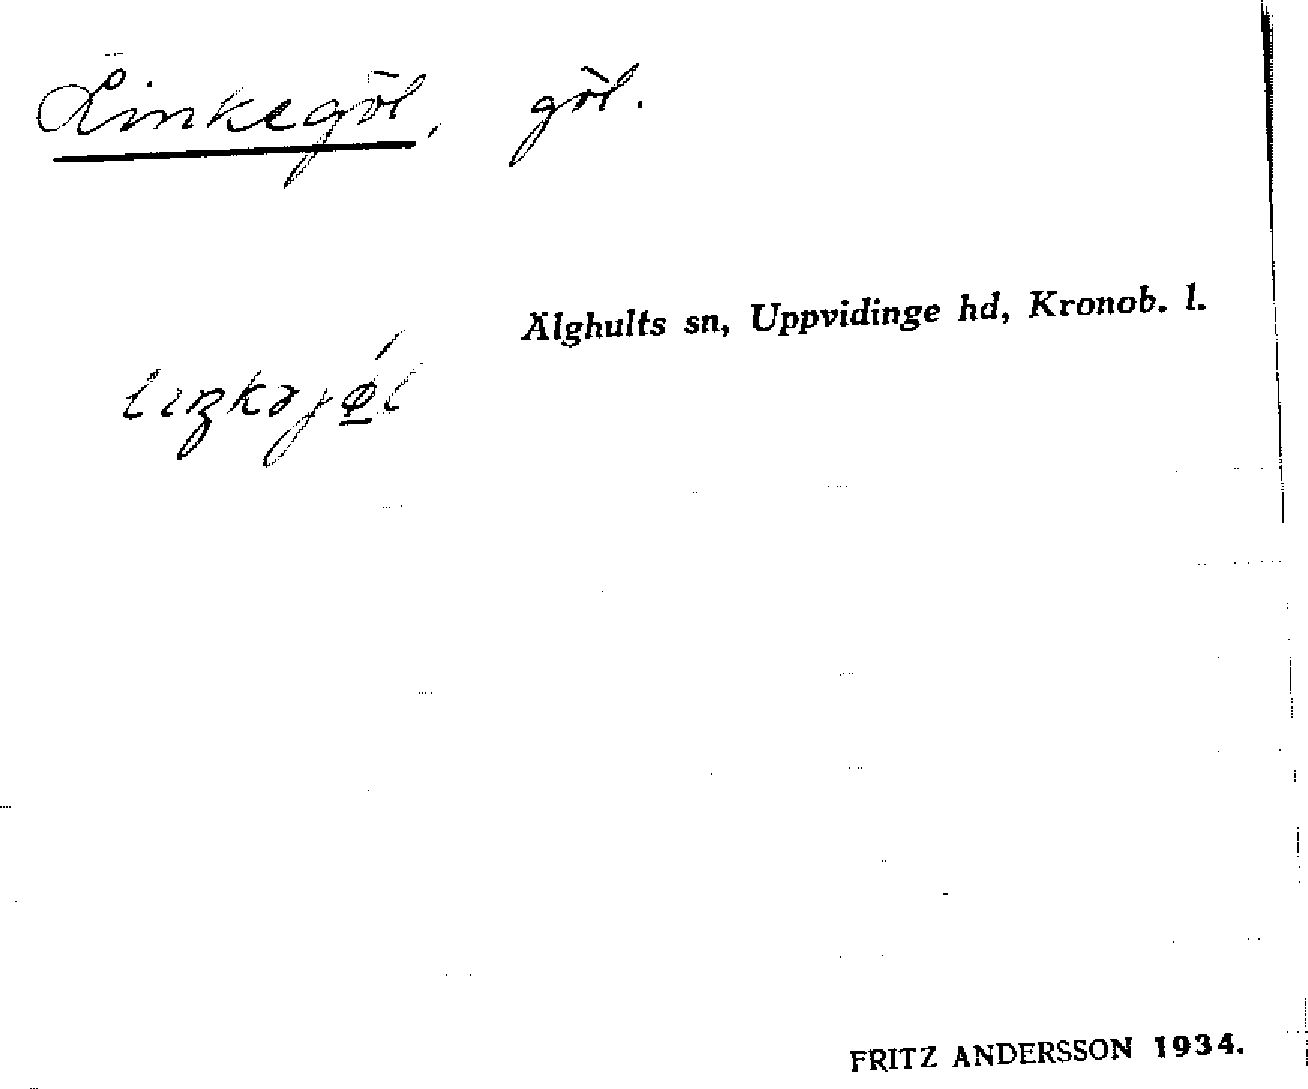 Linkegöl, göl.
Älghults sn, Uppvidinge hd, Kronob. l.
lıŋkəjǿ̲l
FRITZ ANDERSSON 1934.